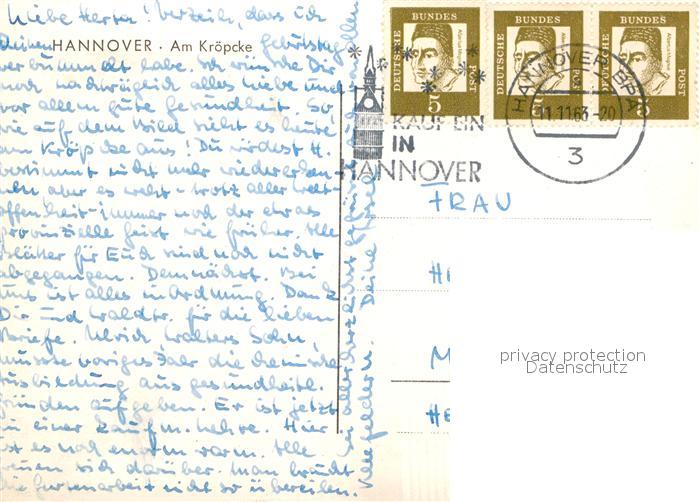 Liebe Herta! Verzeih, dass ich
Deinen Geburtstag
HANNOVER · Am Kröpcke
verbummelt habe. Ich wünsche Dir
noch nachträglich alles Liebe und
vor allem gute Gesundheit. So
wie auf dem Bild sieht es heute
am Kröpcke aus! Du würdest H.
bestimmt nicht mehr wiedererken-
nen aber es weht - trotz aller Welt-
offenheit - immer noch der etwas
provinzielle Geist wie früher. Alle
Blätter für Euch sind noch nicht
abgegangen. Demnächst. Bei
uns ist alles in Ordnung. Dank
Dir und Walter für die lieben
Briefe. Ulrich, Walters Sohn,
musste voriges Jahr die
Ausbildung aus gesundheitl.
Gründen aufgeben. Er ist jetzt
in einer Kaufm. Lehre. Hier
ist es noch enorm warm. Alle
freuen sich darüber. Man braucht
die Gartenarbeit nicht so übereilen.
Sei allerherzlichst gegrüsst
Deine
DEUTSCHE BUNDESPOST
Albertus Magnus
5
DEUTSCHE BUNDESPOST
Albertus Magnus
5
DEUTSCHE BUNDESPOST
Albertus Magnus
5
KAUF EIN
IN
HANNOVER
HANNOVER BPA
11.11.63-20
3
FRAU
H
M
HE
privacy protection
Datenschutz